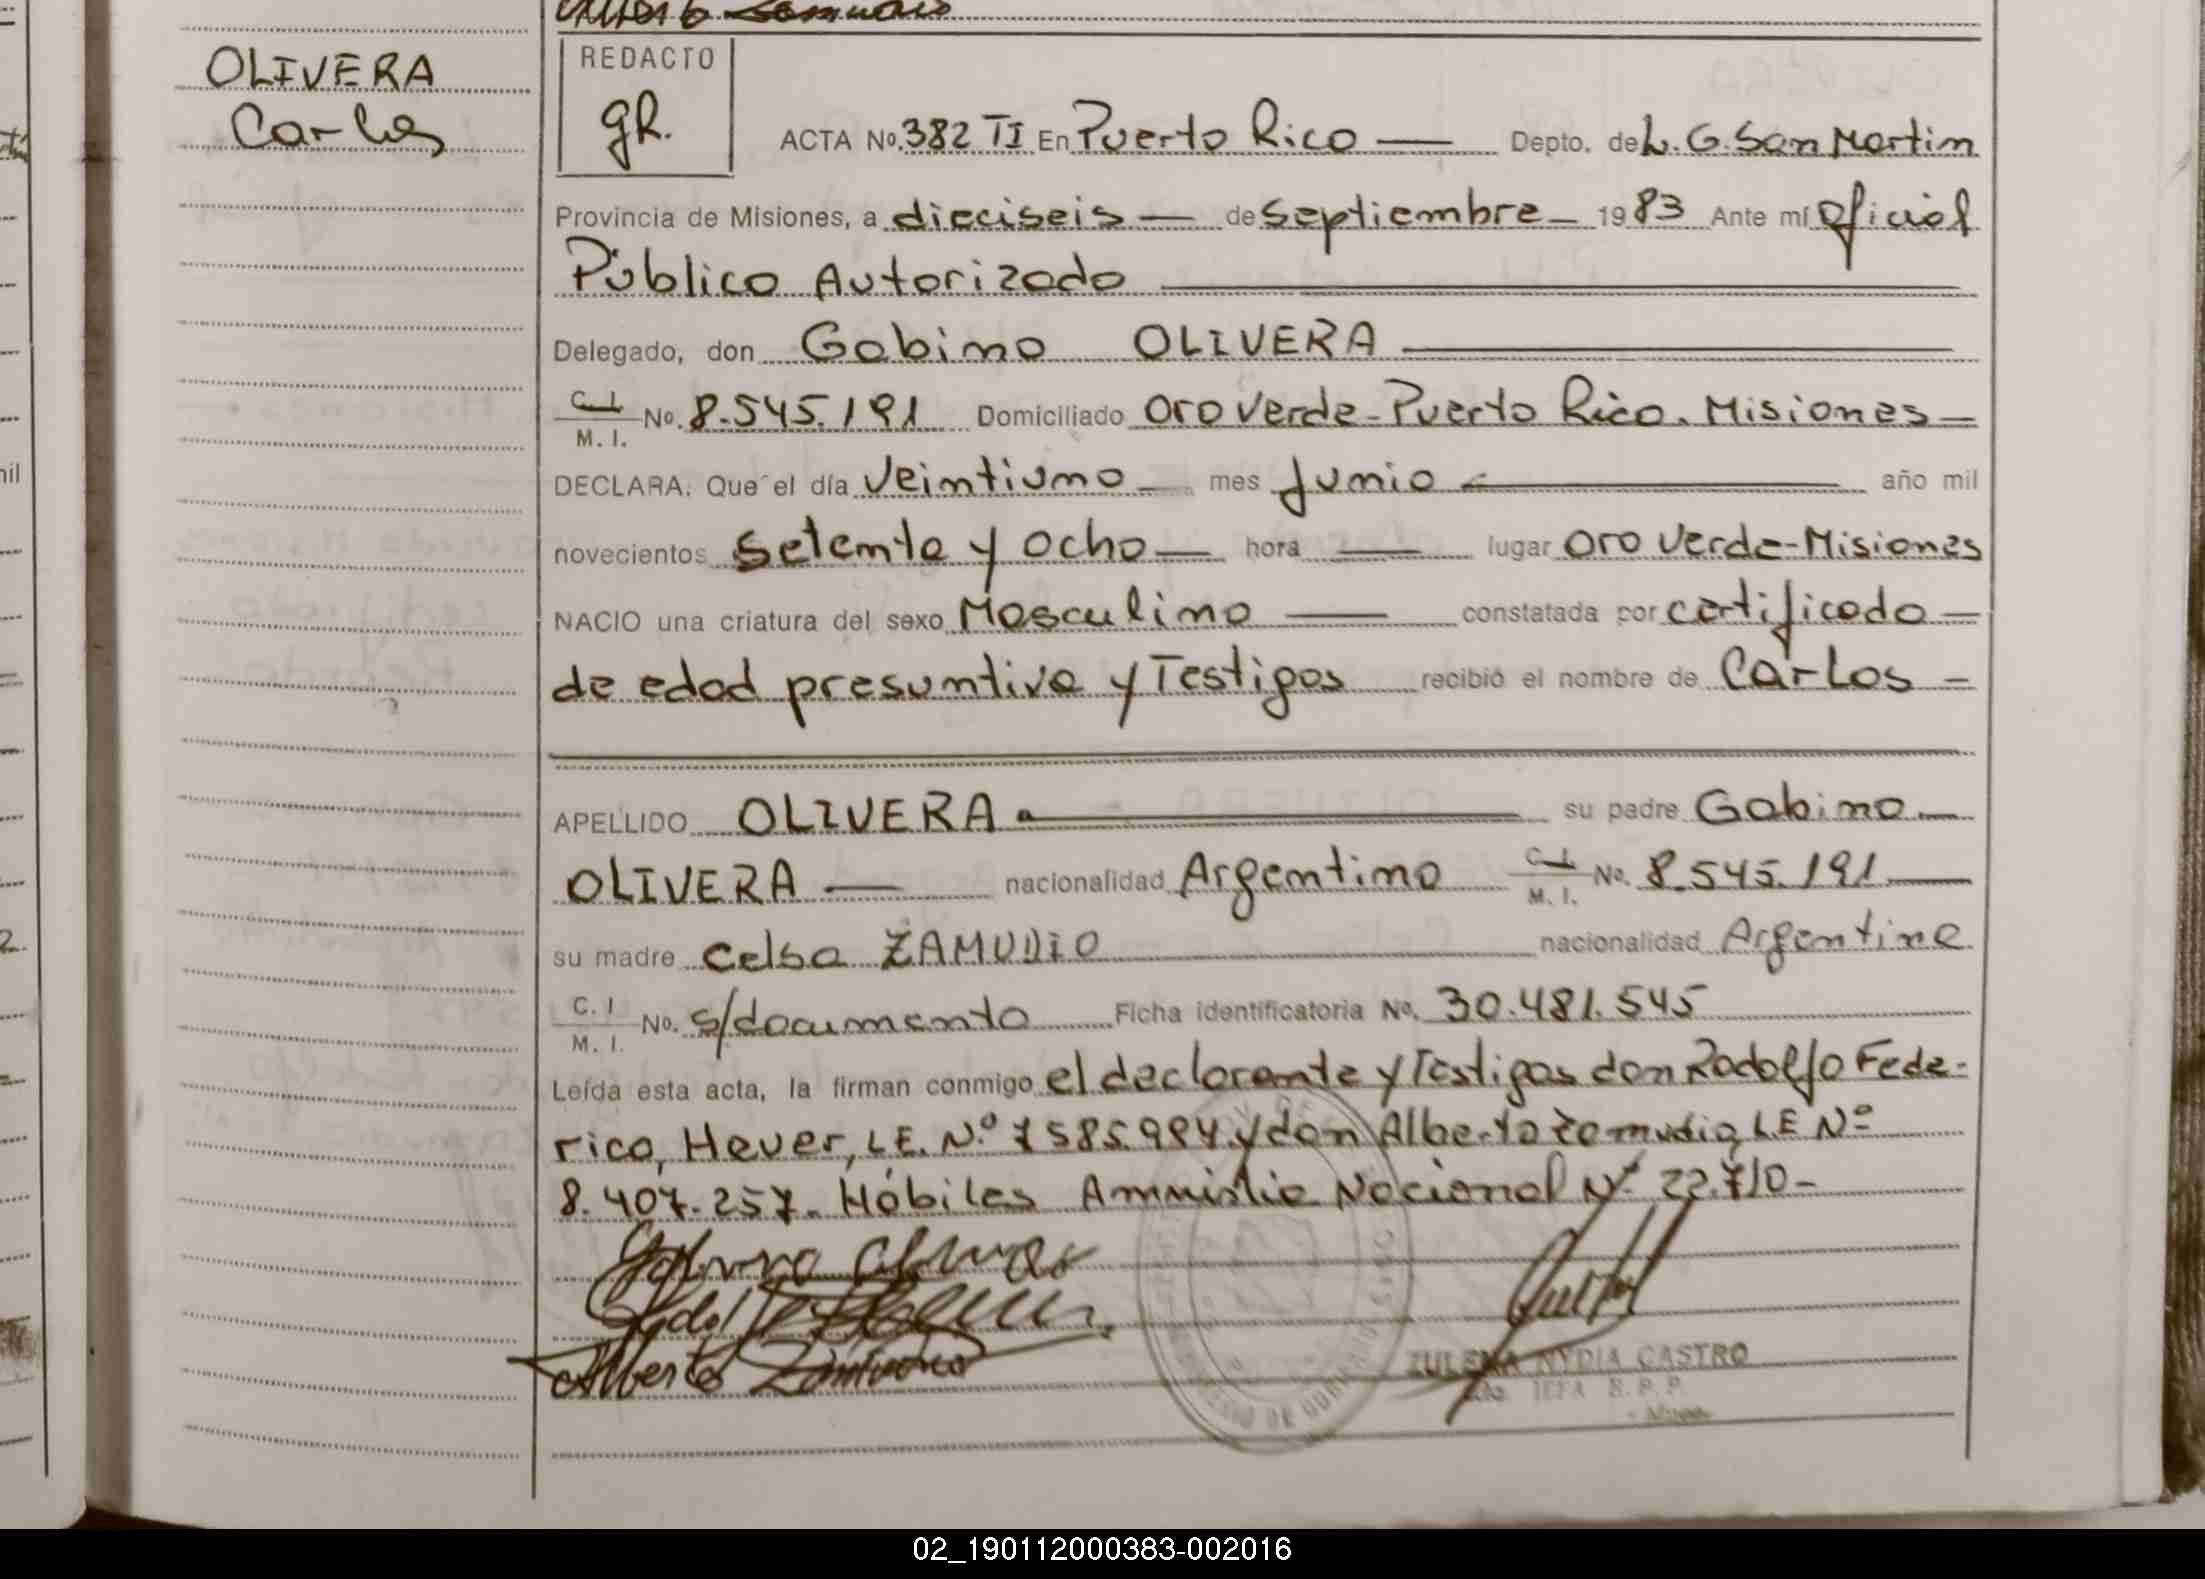 OLIVERA
Carlos
REDACTO
gR.
ACTA No. 382 TI En Puerto Rico — Depto. de L. G. San Martin
Provincia de Misiones, a dieciseis — de septiembre — 1983 Ante mí Oficial
Público Autorizado
Delegado, don Gabino OLIVERA
C. I. M. I. No. 8.545.191 Domiciliado Oro Verde - Puerto Rico. Misiones —
DECLARA: Que el día Veintiuno — mes Junio — año mil
novecientos setenta y ocho — hora — lugar Oro Verde - Misiones
NACIO una criatura del sexo Masculino — constatada por certificado —
de edad presuntiva y Testigos recibió el nombre de Carlos —
APELLIDO OLIVERA — su padre Gabino —
OLIVERA — nacionalidad Argentino C. I. M. I. No. 8.545.191 —
su madre Celsa ZAMUDIO nacionalidad Argentina
C. I M. I. No. s/documento Ficha identificatoria No. 30.481.545
Leída esta acta, la firman conmigo el declarante y Testigos don Rodolfo Fede-
rico, Hever, L.E. N.º 7585.984 y don Alberto Zamudio, L.E Nº
8.407.257. Hábiles Amnistia Nacional Nº 22.710-
Alberto Zamudio
ZULEMA NYDIA CASTRO
JEFA R. P. P.
02_190112000383-002016